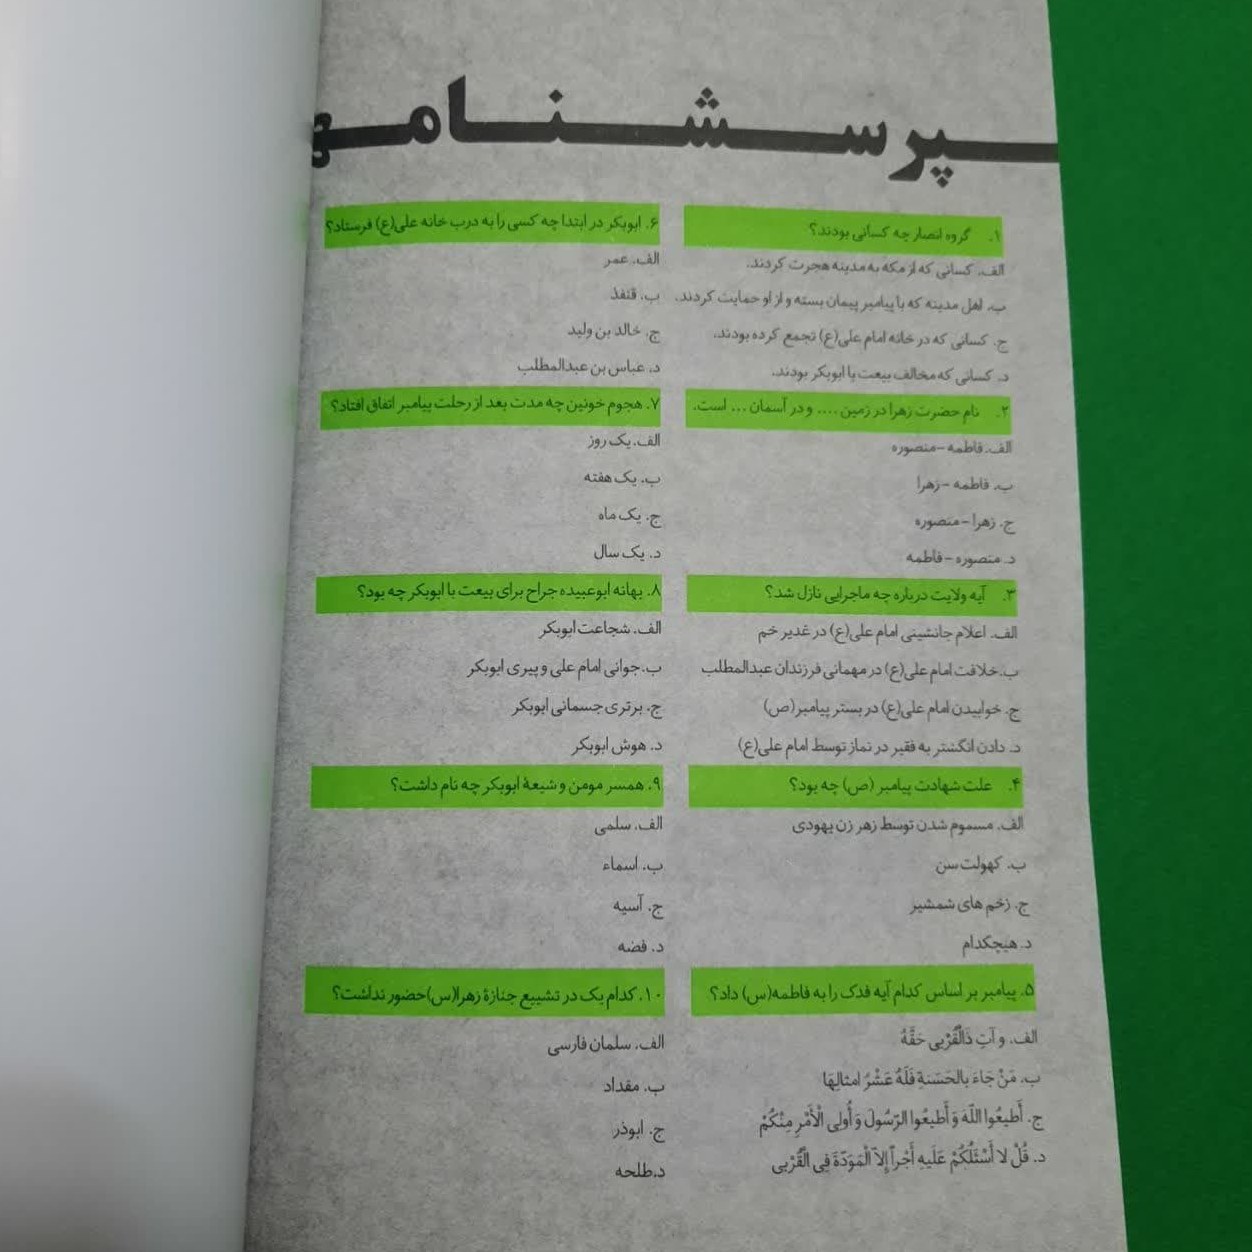 پرسشنامه
۱. گروه انصار چه کسانی بودند؟
الف. کسانی که از مکه به مدینه هجرت کردند.
ب. اهل مدینه که با پیامبر پیمان بسته و از او حمایت کردند.
ج. کسانی که در خانه امام علی(ع) تجمع کرده بودند.
د. کسانی که مخالف بیعت با ابوبکر بودند.
۲. نام حضرت زهرا در زمین .... و در آسمان ... است.
الف. فاطمه – منصوره
ب. فاطمه – زهرا
ج. زهرا – منصوره
د. منصوره – فاطمه
۳. آیه ولایت درباره چه ماجرایی نازل شد؟
الف. اعلام جانشینی امام علی(ع) در غدیر خم
ب. خلافت امام علی(ع) در مهمانی فرزندان عبدالمطلب
ج. خوابیدن امام علی(ع) در بستر پیامبر(ص)
د. دادن انگشتر به فقیر در نماز توسط امام علی(ع)
۴. علت شهادت پیامبر (ص) چه بود؟
الف. مسموم شدن توسط زهر زن یهودی
ب. کهولت سن
ج. زخم های شمشیر
د. هیچکدام
۵. پیامبر بر اساس کدام آیه فدک را به فاطمه(س) داد؟
الف. و آتِ ذَالْقُرْبی حَقَّهُ
ب. مَنْ جَاءَ بالحَسَنةِ فَلَهُ عَشْرُ امثالِهَا
ج. أَطیعُوا اللّهَ وَ أَطیعُوا الرّسُولَ وَ أُولِی الْأَمْرِ مِنْکُمْ
د. قُلْ لا أَسْئَلُکُمْ عَلَیهِ أَجْراً إِلاّ الْمَوَدّةَ فِی الْقُرْبی
۶. ابوبکر در ابتدا چه کسی را به درب خانه علی(ع) فرستاد؟
الف. عمر
ب. قنفذ
ج. خالد بن ولید
د. عباس بن عبدالمطلب
۷. هجوم خونین چه مدت بعد از رحلت پیامبر اتفاق افتاد؟
الف. یک روز
ب. یک هفته
ج. یک ماه
د. یک سال
۸. بهانه ابوعبیده جراح برای بیعت با ابوبکر چه بود؟
الف. شجاعت ابوبکر
ب. جوانی امام علی و پیری ابوبکر
ج. برتری جسمانی ابوبکر
د. هوش ابوبکر
۹. همسر مومن و شیعهٔ ابوبکر چه نام داشت؟
الف. سلمی
ب. اسماء
ج. آسیه
د. فضه
۱۰. کدام یک در تشییع جنازهٔ زهرا(س) حضور نداشت؟
الف. سلمان فارسی
ب. مقداد
ج. ابوذر
د. طلحه